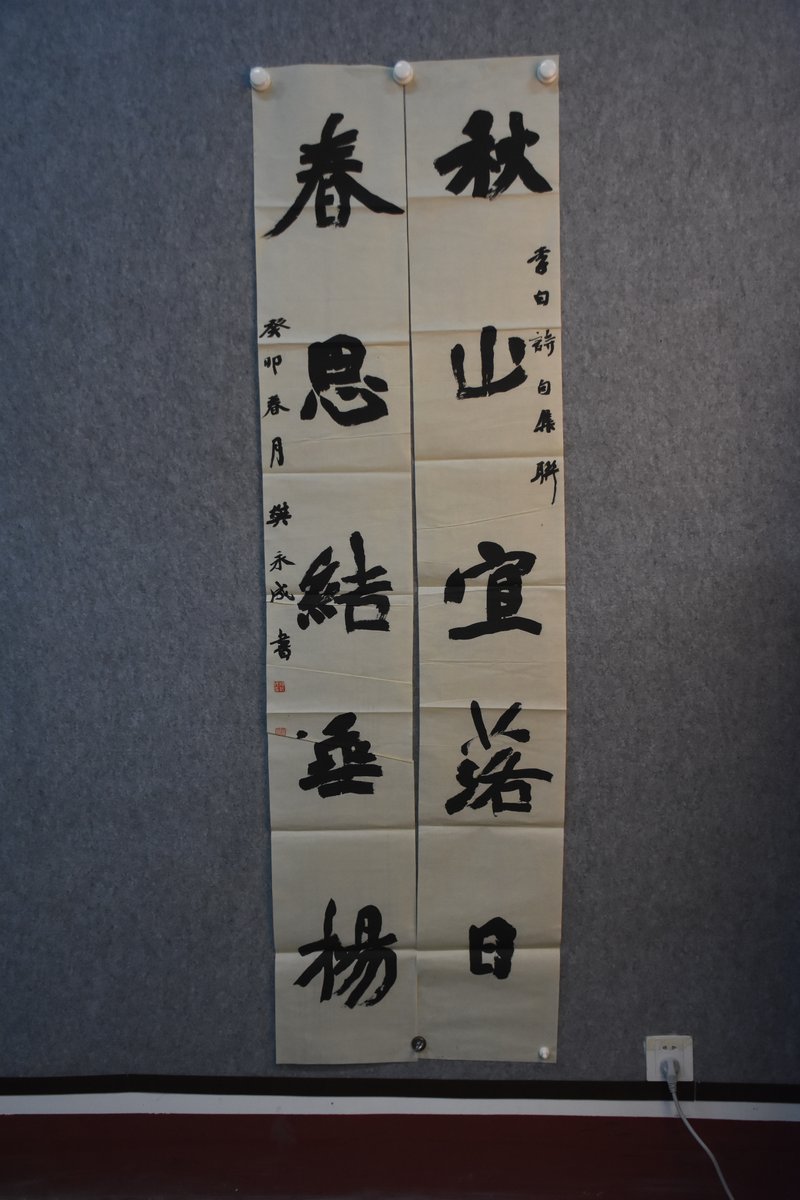 秋山宜落日
李白詩句集聯
春思結垂楊
癸卯春月樊永成書